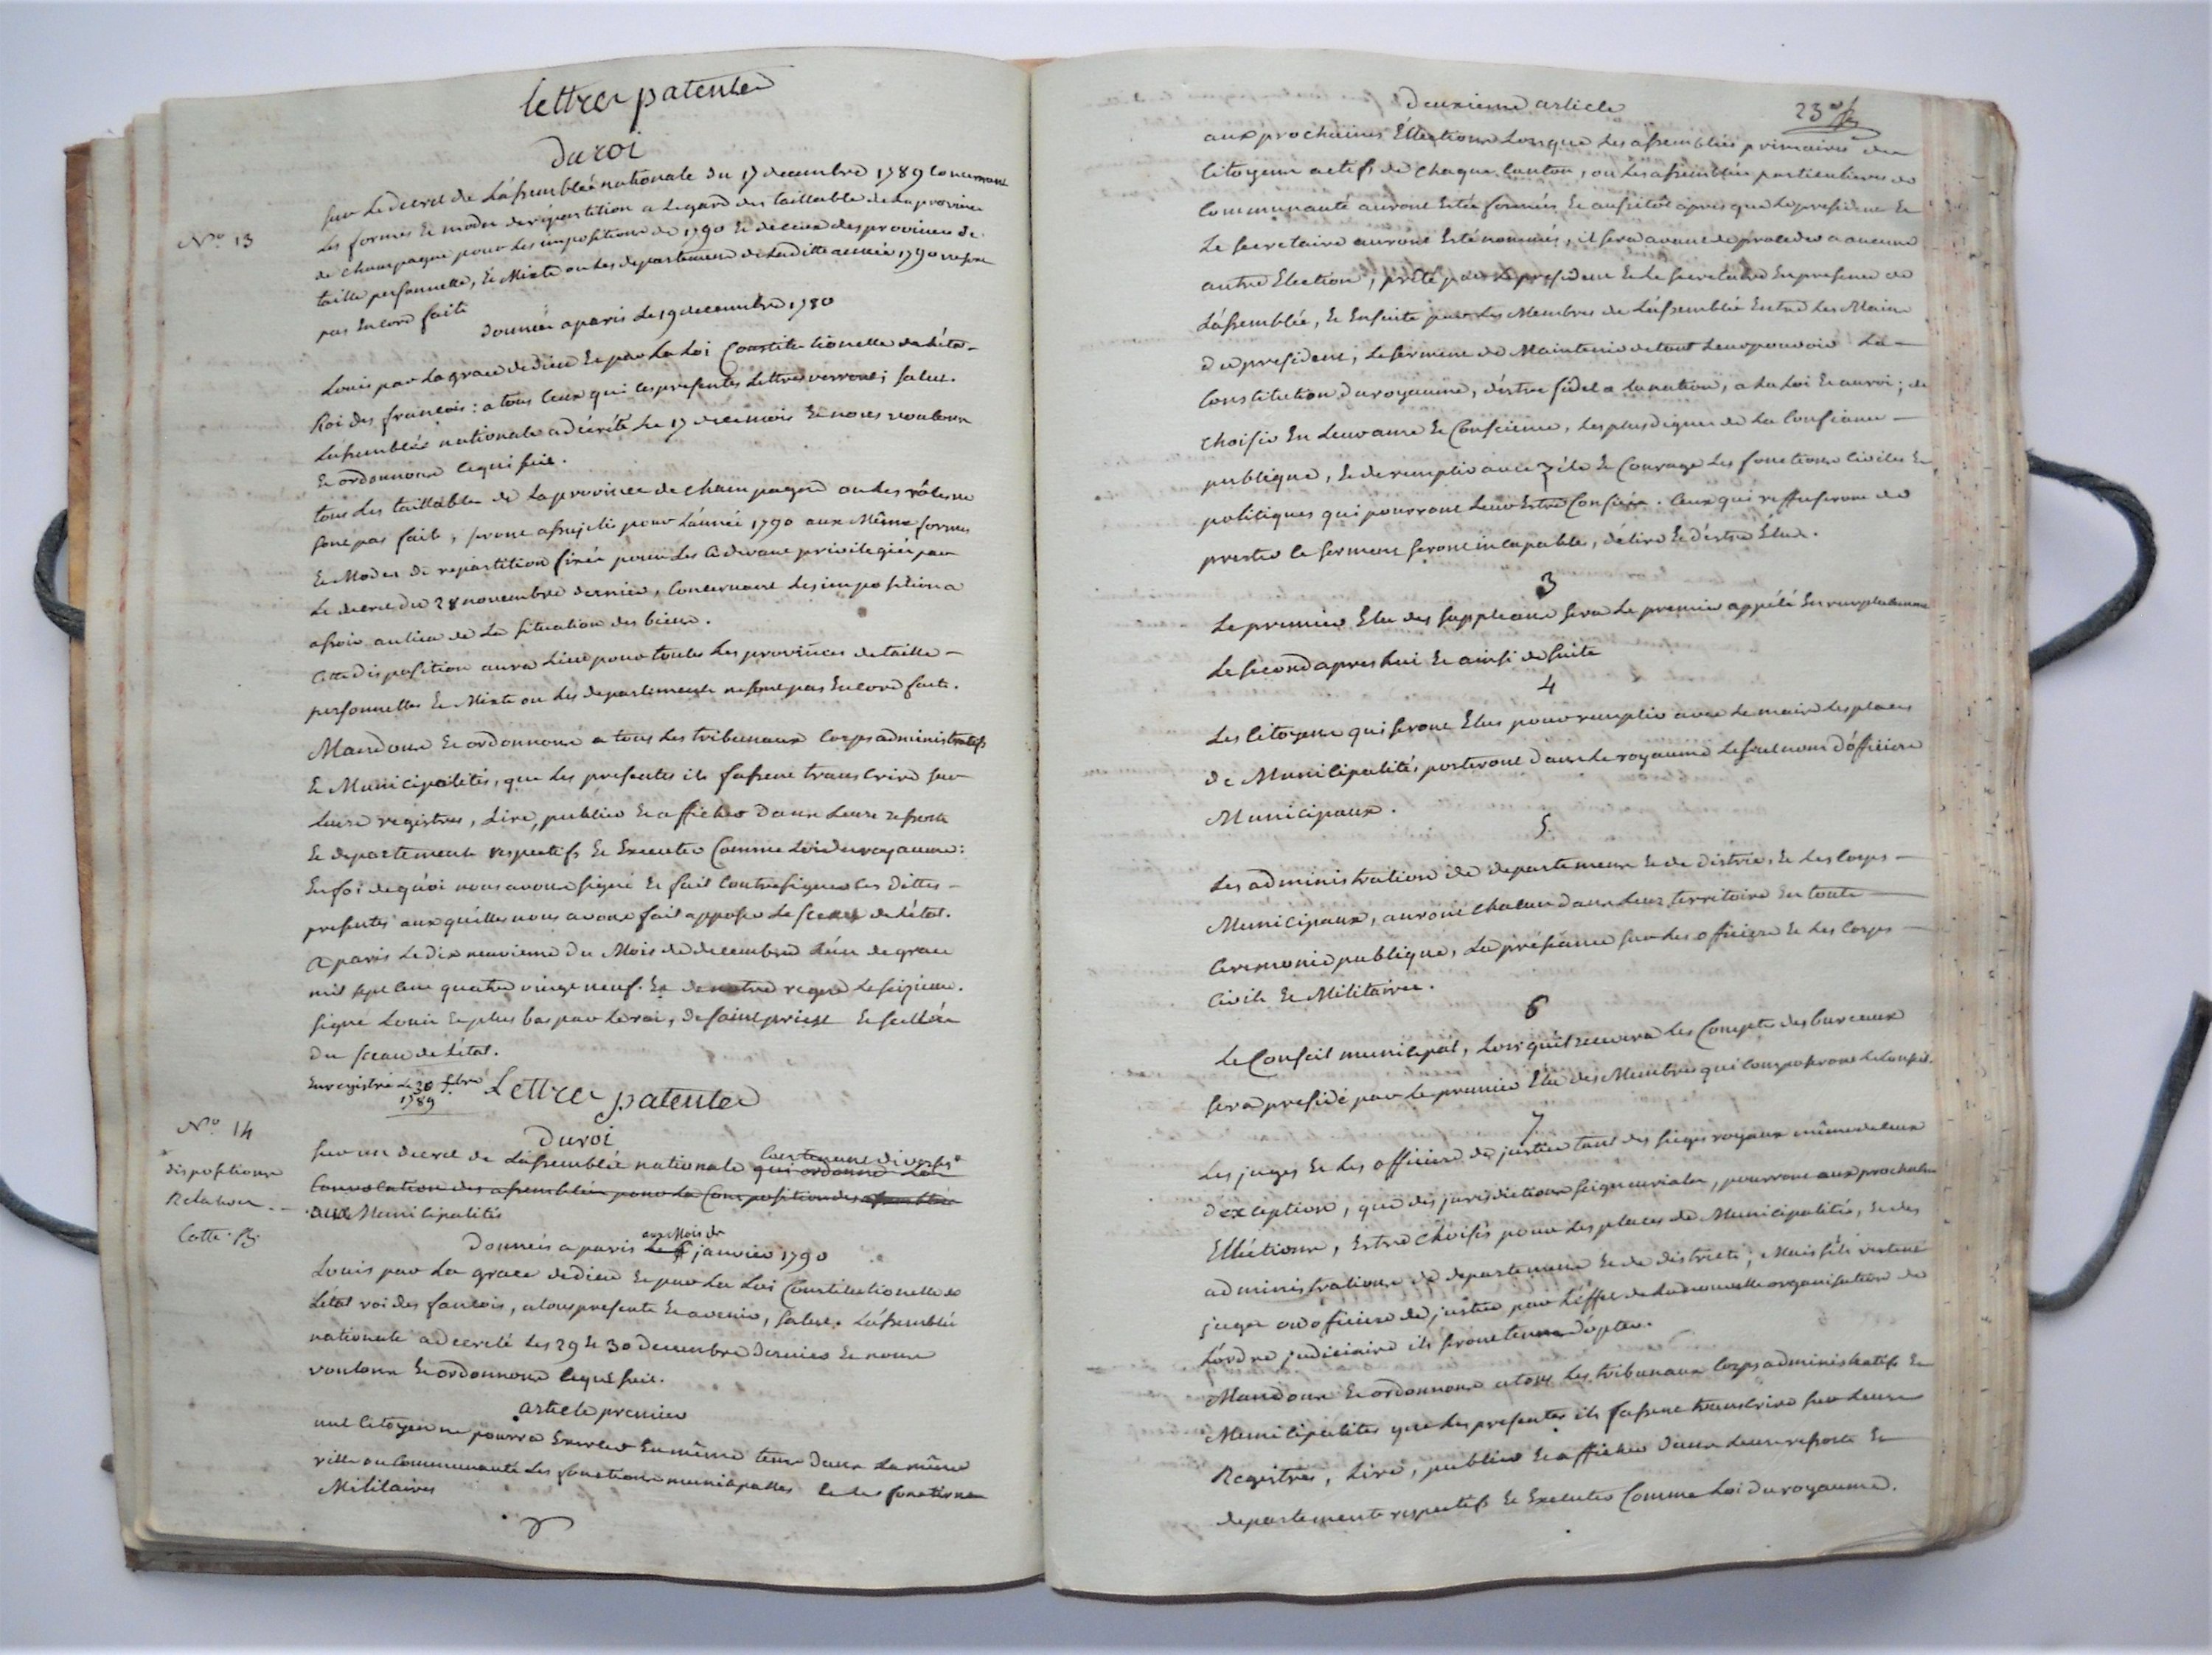 lettres patentes
du roi
N.o 13
sur le decret de L'assemblée nationale du 17 decembre 1789 concernant
les formes et modes de repartition a legard des taillable de la province
de champagne pour les impositions de 1790 et de ceux des provinces de
taille personnelle, et Mixte ou les departemens de laditte année 1790 ne sont
pas Encore faits
Donnée a paris le 19 decembre 1780
Louis par la grace de dieu Et par la Loi Constitutionelle de l'éta-
Roi des françois : a tous Ceux qui les presentes Lettres verront ; salut.
L'assemblée nationale a decrété Le 17 de ce mois Et nous voulons
Et ordonnons Ce qui suit.
tous Les taillables de La province de champagne ou Les rôles ne
sont pas faits, seront assujetis pour L'année 1790 aux Même formes
Et Modes de repartition fixée pour Les Cidevant privilegiés par
Le decret du 28 novembre dernier, Concernant Les impositions a
assoir au lieu de La situation des biens.
Cette disposition aura Lieu pour toutes Les provinces de taille –
personnelles Et Mixte ou Les departements ne sont pas Encore faits.
Mandons Et ordonnons a tous Les tribunaux Corps administratifs
Et Municipalités, que Les presentes ils fassent transcrire sur
Leurs registres, Lire, publier Et afficher dans Leurs ressorts
Et departements respectifs Et Executer Comme Loi du royaume :
En foi de quoi nous avons signé Et fait Contresigner Les dittes –
presentes aux quelles nous avons fait apposer Le sceau de L'état.
a paris Le dix neuvieme du Mois de decembre L'an de grace
mil sept Cent quatre vingt neuf. Et de notre regne Le seizieme.
signé Louis Et plus bas par Le roi, de saint priest Et scellée
du sceau de L'état.
Enregistré le 30 Xbre
1789
Lettres patentes
Du roi
N.o 14
dispositions
Relatives
Cotte B.
sur un decret de L'assemblée nationale qui ordonne La Contenant diverses
Convocation des assemblées pour La Composition des assemblées
aux Municipalités
Données a paris Le au Mois de janvier 1790
Louis par La grace de dieu Et par La Loi Constitutionelle de
L'etat roi des françois, a tous presents Et avenir, salut. L'assemblée
nationale a decreté Les 29 Et 30 decembre dernier Et nous
voulons Et ordonnons Ce qui suit.
article premier
nul Citoyen ne pourra Exercer En même tems dans La même
ville ou Communauté Les fonctions municipalles Et Les fonctions
Militaires
Deuxieme article
23
aux prochaines Éllections Lorsque Les assemblées primaires des
Citoyens actifs de Chaque Canton, ou Les assemblées particulieres de
Communauté auront Estée formées, Et aussitot après que Le president Et
Le secretaire auront Esté nommés, il sera avant de proceder a aucune
autre Election, prêté par Le president Et Le secretaire En presence de
L'assemblée, Et Ensuite par Les Membres de L'assemblée Entre Les Mains
du president, Le serment de Maintenir de tout Leur pouvoir La –
Constitution du royaume, d'éstre fidel a La nation, a La Loi Et au roi ; de
Choisir En Leur ame Et Conscience, Les plus dignes de La Confiance –
publique, Et de remplir avec zéle Et Courage Les fonctions Civiles Et
politiques qui pourront Leur Estre Confiées. Ceux qui reffuseront de
prester Ce serment seront incapables, d'élire Et d'éstre Élus.
3
Le premier Elu des suppleans sera Le premier appélé En remplacement
Le second apres Lui Et ainsi de suite
4
Les Citoyens qui seront Elus pour remplir avec Le maire Les places
de Municipalités, porteront dans Le royaume Le seul nom d'officiers
Municipaux.
5
Les administrations de departemens Et de district, Et Les Corps –
Municipaux, auront Chacun dans Leur territoire En toute –
Ceremonie publique, La préséance sur Les officiers Et Les Corps –
Civils Et Militaires.
6
Le Conseil municipal, Lorsqu'il recevra Les Comptes des bureaux
sera presidé par Le premier Elu des Membres qui Composeront Le Conseil.
7
Les juges Et Les officiers de justice tant des sieges royaux même de Ceux
d'exception, que des jurisdictions seigneuriales, pourront aux prochaines
Elléctions, Estre Choisis pour Les places de Municipalités, Et des
administrations de departemens Et de districts ; Mais s'ils restent
juges ou officiers de justice par L'éffet de La nouvelle organisation de
L'ordre judiciaire ils seront tenus d'opter.
Mandons Et ordonnons a tous Les tribunaux Corps administratifs Et
Municipalités que Les presentes ils fassent transcrire sur Leurs
Registres, Lire, publier Et afficher dans Leurs ressorts Et
departements respectifs Et Executer Comme Loi du royaume.